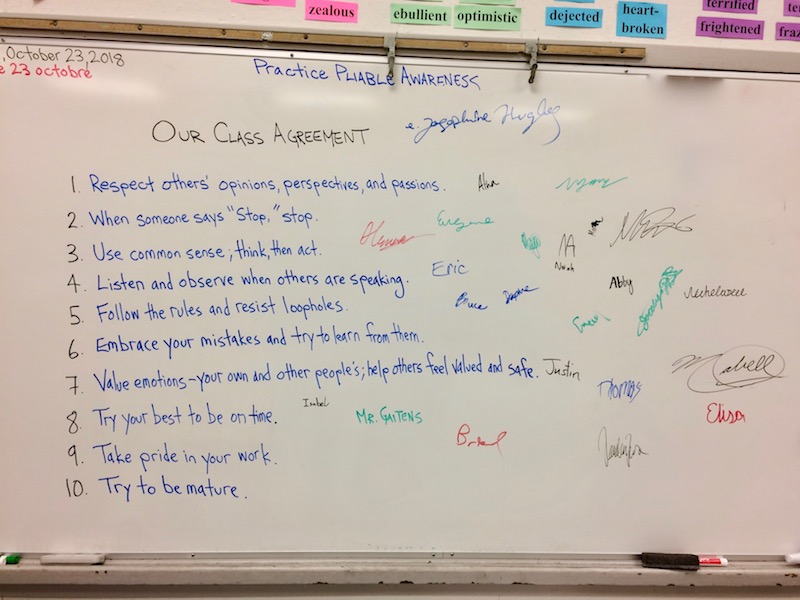 zealous
ebullient
optimistic
dejected
heart-
broken
terrified
frightened
, October 23, 2018
23 octobre
Practice Pliable Awareness
Our Class Agreement
1. Respect others' opinions, perspectives, and passions.
2. When someone says "Stop," stop.
3. Use common sense; think, then act.
Eric
Noah
4. Listen and observe when others are speaking.
Abby
5. Follow the rules and resist loopholes.
6. Embrace your mistakes and try to learn from them.
7. Value emotions—your own and other people's; help others feel valued and safe.
Justin
Thomas
Isabel
8. Try your best to be on time.
Mr. Gaitens
Elisa
9. Take pride in your work.
10. Try to be mature.